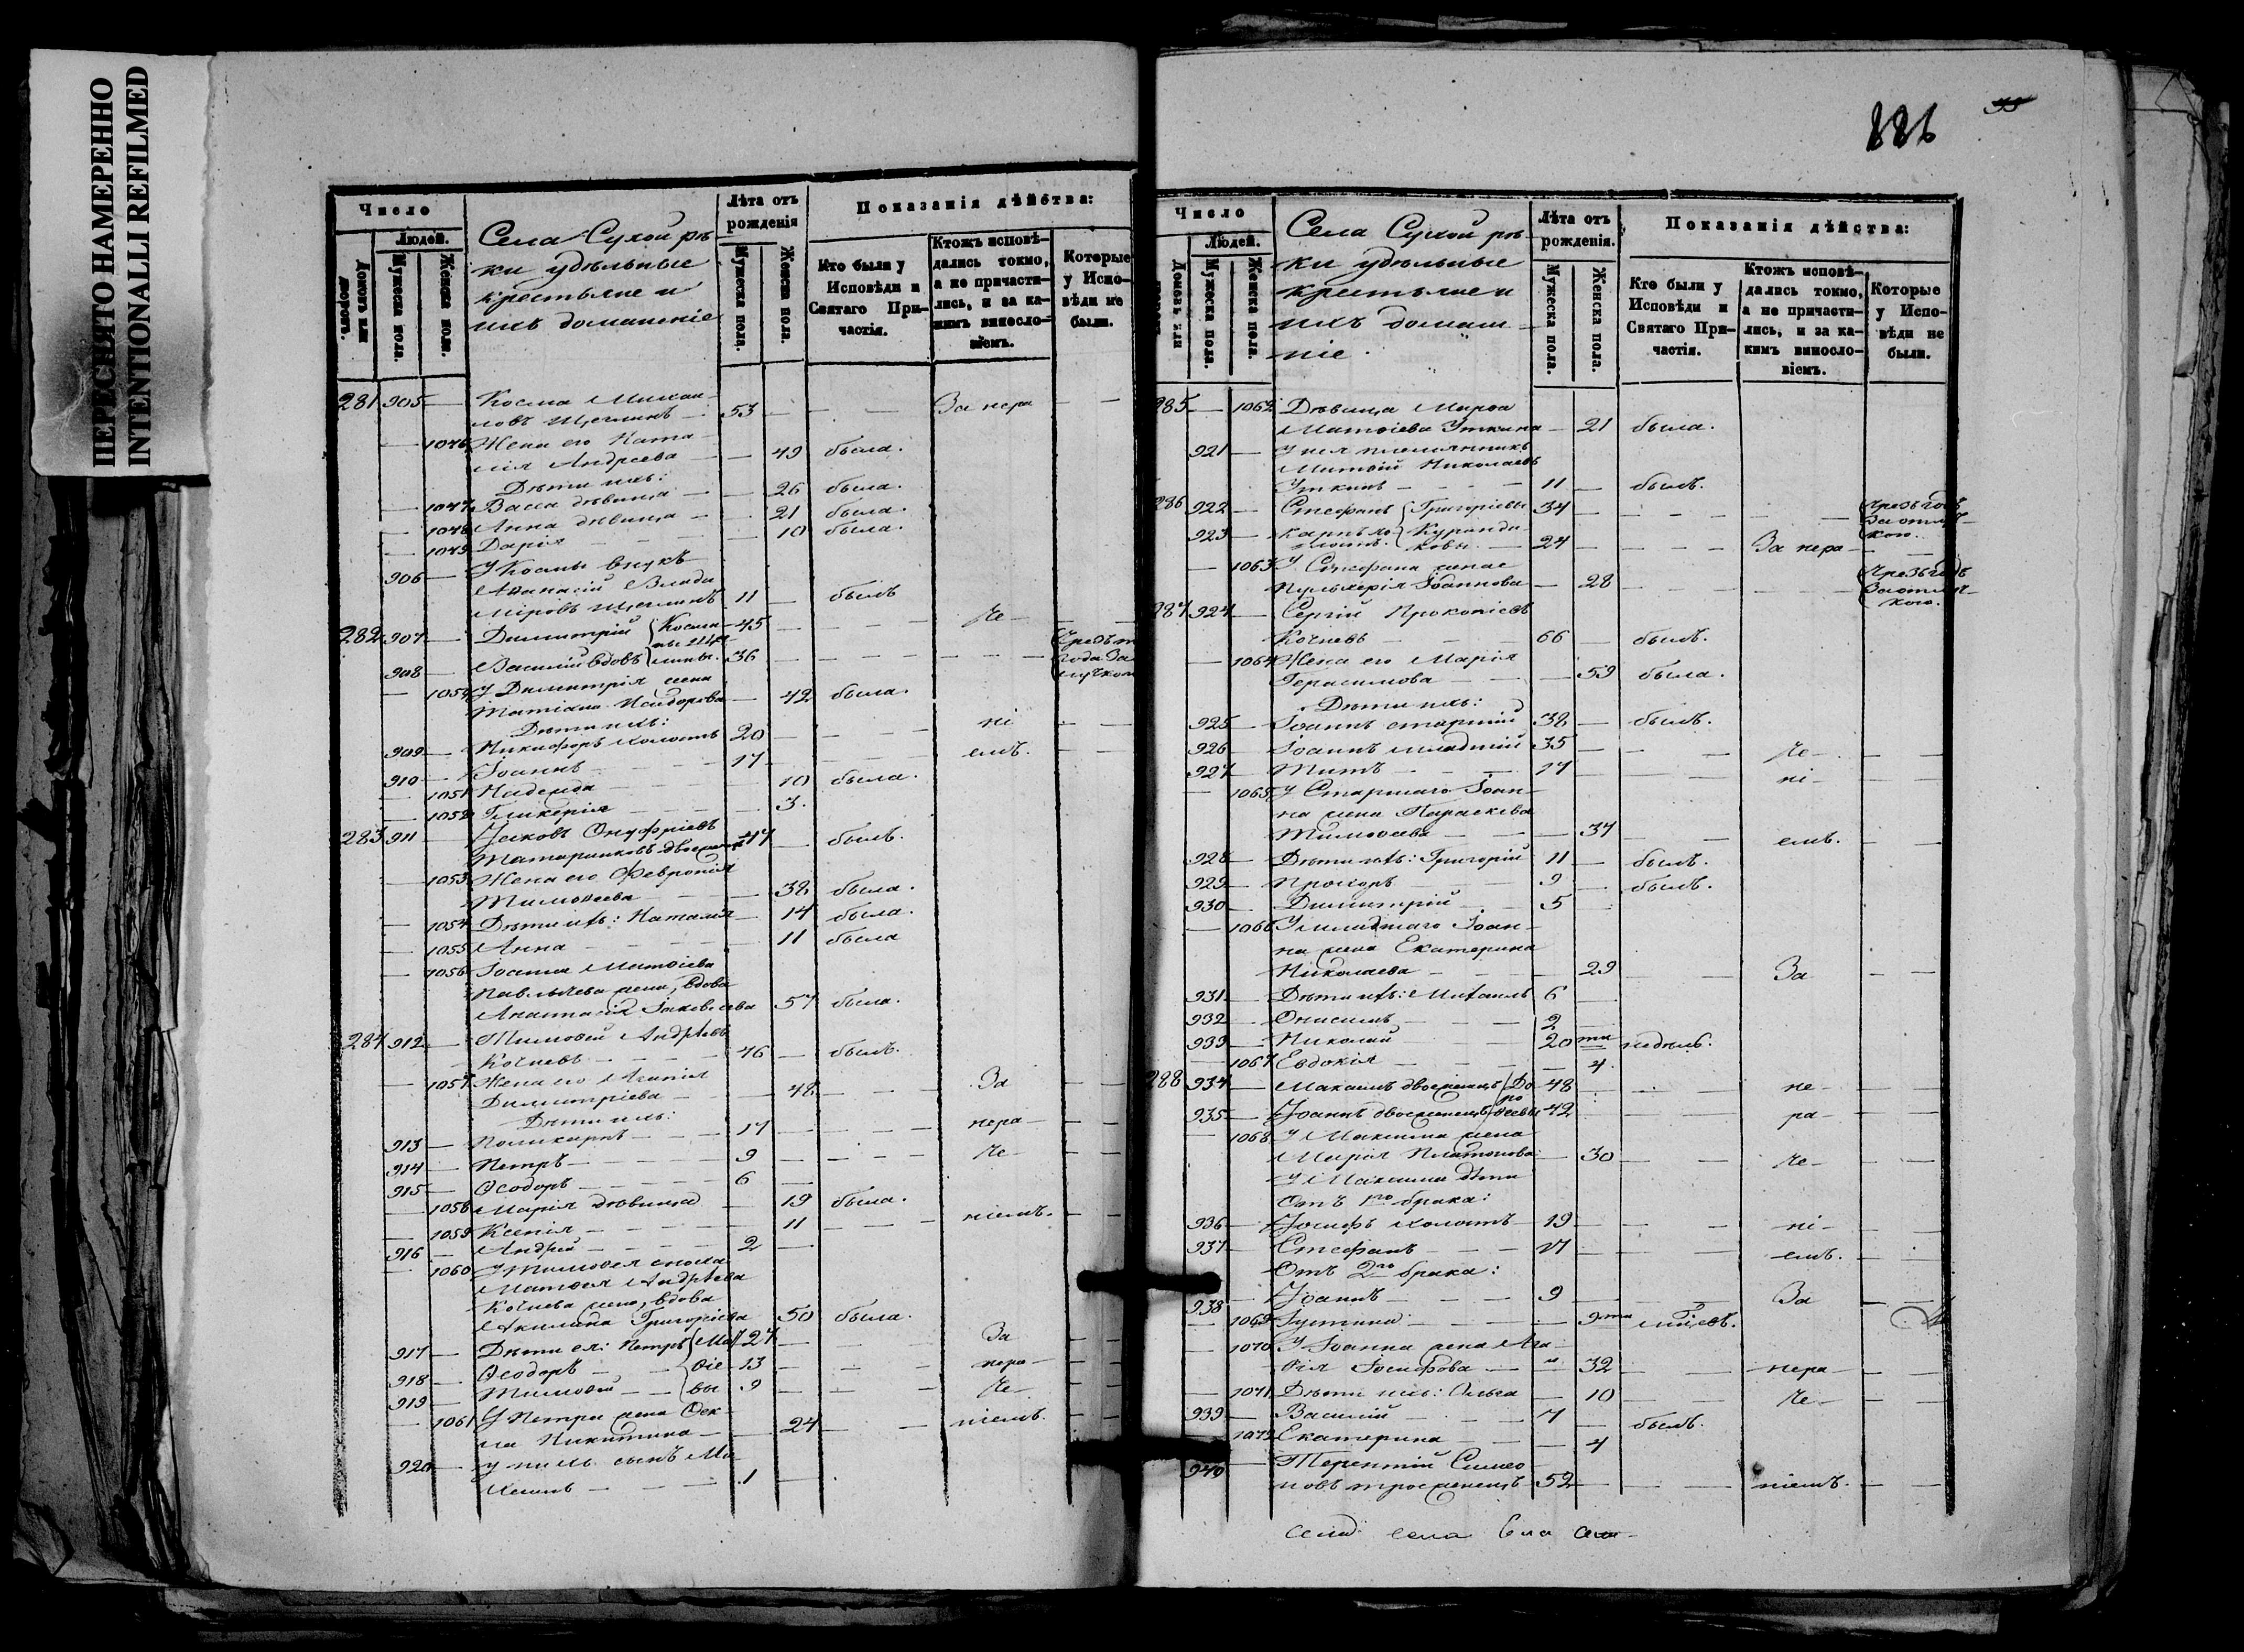 ПЕРЕСНЯТО НАМЕРЕННО
INTENTIONALLI REFILMED
Число
Людей.
Домовъ или дворовъ.
Мужеска пола.
Женска пола.
Села Сухой рѣ-
ки удѣльные
крестьяне и
ихъ домашніе
Лѣта отъ рожденія
Мужеска пола.
Женска пола.
Показанія дѣйства:
Кто были у Исповѣди и Святаго Причастія.
Ктожъ исповѣ-
дались токмо,
а не причасти-
лись, и за ка-
кимъ винесло-
віемъ.
Которые
у Испо-
вѣди не
были.
281 905 — Косма Михаи-
ловъ Щеглинъ — 53 — — — За нера — —
— 1046 Жена его Ната-
лія Андреева — — 49 была.
Дѣти ихъ:
— 1047 Васса дѣвица — — 26 была.
— 1048 Анна дѣвица — — 21 была.
— 1049 Дарія — — 10 была.
906 — У Космы внукъ
Аѳанасій Влади
міровъ Щеглинъ 11 — былъ
282 907 — Димитрій Косми- 45 — — — Че — —
908 — Василій вдовъ 36 — — —
— 1050 У Димитрія жена
Татіана Исидорова — 42 была.
Дѣти ихъ:
909 — Никифоръ холостъ 20 — — ні — —
910 — Іоаннъ — — — 17 — — емъ. — —
— 1051 Надежда — — 10 была.
— 1052 Гликерія — — — 3.
283 911 — Іаковъ Онуфріевъ
Татаринковъ двоеженецъ 47 — былъ.
— 1053 Жена его Февронія
Тимоѳеева — — 38 была.
— 1054 Дѣти ихъ: Наталія — 14 была.
— 1055 Анна — — — 11 была
— 1056 Іоанна Матѳіева
Павлычева жена, вдова
Анастасія Іаковлева 57 была.
284 912 — Тимоѳей Андрѣевъ
Кочневъ — — — 46 — былъ.
— 1057 Жена его Агапія
Димитріева — — 48 — — За — —
Дѣти ихъ:
913 — Поликарпъ — — 17 — — — нера — —
914 — Петръ — — — 9 — — — Че — —
915 — Ѳеодоръ — — 6 —
— 1058 Марія дѣвица — 19 была.
— 1059 Ксенія — — — 11 — — — ніемъ. — —
916 — Андрей — — 2 —
— 1060 У Тимоѳея сноха
Матѳея Андрѣева
Кочнева жена, вдова
Акилина Григоріева 50 была.
917 — Дѣти ея: Петръ Мат 27 — — За — —
918 — Ѳеодоръ — ѳіе- 13 — — — нера — —
919 — Тимоѳей — вы 9 — — — Че — —
— 1061 У Петра жена Ѳек-
ла Никитина — — 24 — — ніемъ. — —
920 — у нихъ сынъ Ми
хаилъ — — — 1 —
886
Число
Людей.
Домовъ или
Мужеска пола.
Женска пола.
Села Сухой рѣ-
ки удѣльные
крестьяне и
ихъ домаш-
ніе.
Лѣта отъ рожденія.
Мужеска пола.
Женска пола.
Показанія дѣйства:
Кто были у Исповѣди и Святаго Причастія.
Ктожъ исповѣ-
дались токмо,
а не причасти-
лись, и за ка-
кимъ винесло-
віемъ.
Которые
у Испо-
вѣди не
были.
285 — 1062 Дѣвица Марѳа
Матѳіева Уткина — 21 была.
921 — У нея племянникъ
Матвій Николаевъ
Уткинъ — — — 11 — былъ.
286 922 — Стефанъ Григоріевы 34 — — — — Чрезъ годъ
За отлуч-
кою.
923 — Карпъ хо- Куранда-
лостъ. ковы. — 24 — — — За нера — —
— 1063 У Стефана жена
Пульхерія Іоаннова — 28 — — — Чрезъ годъ
За отлуч-
кою.
287 924 — Сергій Прокопіевъ
Кочневъ — — — 66 — былъ.
— 1064 Жена его Марія
Герасимова — — — 59 была.
Дѣти ихъ:
925 — Іоаннъ старшій 38 — былъ.
926 — Іоаннъ младшій 35 — — Че — —
927 — Титъ — — — 17 — — ні — —
— 1065 У Старшаго Іоан-
на жена Параскева
Тимоѳеева — — — 37 — — емъ. — —
928 — Дѣти ихъ: Григорій 11 — былъ.
929 — Прохоръ — — 9 — былъ.
930 — Димитрій — — 5 —
— 1066 У младшаго Іоан-
на жена Екатерина
Николаева — — — 29 — — За — —
931 — Дѣти ихъ: Михаилъ 6 —
932 — Онисимъ — — — 2 —
933 — Николай — — 20 ти недѣль.
— 1067 Евдокія — — — — 4.
288 934 — Максимъ двоеженецъ До- 48 — — не — —
935 — Іоаннъ двоеженецъ роѳеевы 42 — — ра — —
— 1068 У Максима жена
Марія Платонова — 30 — — Че — —
У Максима дѣти
Отъ 1го брака:
936 — Іосифъ холостъ 19 — — ні — —
937 — Стефанъ — — 17 — — емъ. — —
Отъ 2го брака:
938 — Іоаннъ — — — 9 — — За — —
— 1069 Іустина — — — 9ти мѣсяцевъ.
— 1070 У Іоанна жена Ага-
ѳія Іосифова — — 32 — — нера — —
— 1071 Дѣти ихъ: Ольга — 10 — — Че — —
939 — Василій — — — 7 — былъ.
— 1072 Екатерина — — — 4
940 — Терентій Симео-
новъ троеженецъ 52 — — — ніемъ. — —